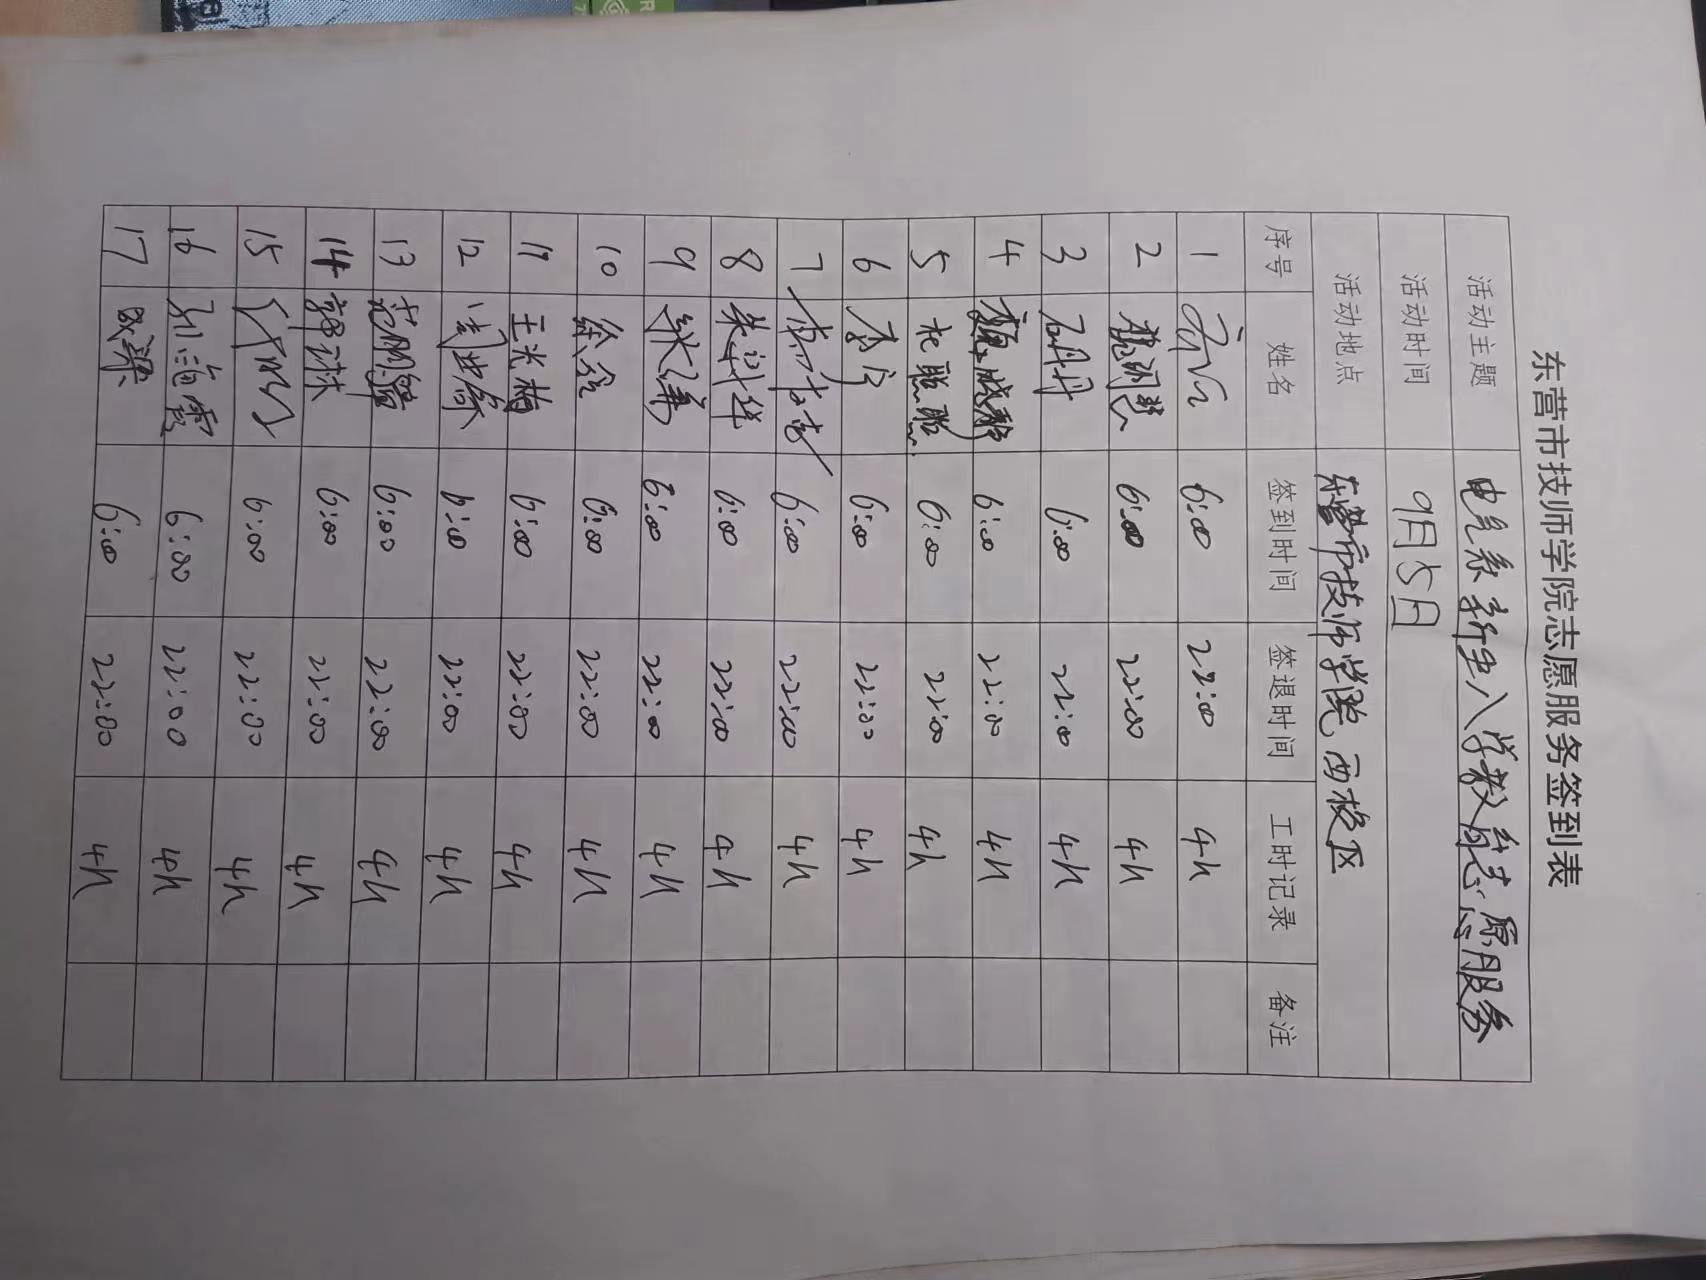 东营市技师学院志愿服务签到表
活动主题 电气系新生入学教育志愿服务
活动时间 9月5日
活动地点 东营市技师学院西校区
序号 姓名 签到时间 签退时间 工时记录 备注
1 6:00 22:00 4h
2 6:00 22:00 4h
3 石丹丹 6:00 22:00 4h
4 6:00 22:00 4h
5 杜聪聪 6:00 22:00 4h
6 6:00 22:00 4h
7 6:00 22:00 4h
8 6:00 22:00 4h
9 6:00 22:00 4h
10 6:00 22:00 4h
11 王光楠 6:00 22:00 4h
12 6:00 22:00 4h
13 6:00 22:00 4h
14 郭球 6:00 22:00 4h
15 6:00 22:00 4h
16 6:00 22:00 4h
17 6:00 22:00 4h